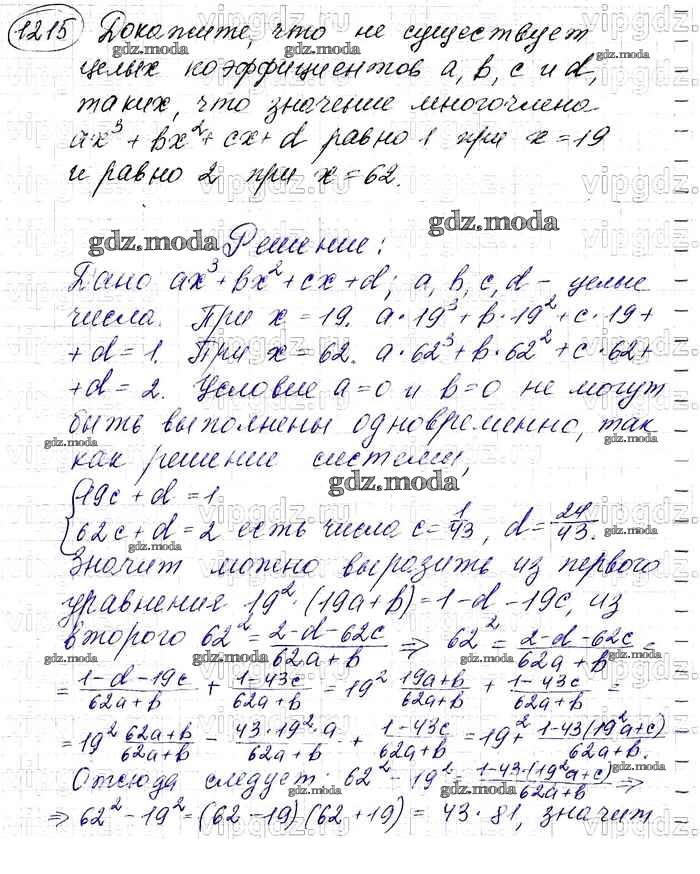 1215 Докажите, что не существует
целых коэффициентов a, b, c и d,
таких, что значение многочлена
ax³ + bx² + cx + d равно 1 при x = 19
и равно 2 при x = 62.
Решение:
Дано ax³ + bx² + cx + d; a, b, c, d – целые
числа. При x = 19. a·19³ + b·19² + c·19 +
+ d = 1. При x = 62. a·62³ + b·62² + c·62 +
+ d = 2. Условие a = 0 и b = 0 не могут
быть выполнены одновременно, так
как решение системы,
{19c + d = 1
{62c + d = 2 есть числа c = 1/43, d = 24/43.
Значит можно выразить из первого
уравнения 19²·(19a + b) = 1 - d - 19c, из
второго 62² = (2 - d - 62c)/(62a + b) ⇒ 62² = (2 - d - 62c)/(62a + b) =
= (1 - d - 19c)/(62a + b) + (1 - 43c)/(62a + b) = 19² (19a + b)/(62a + b) + (1 - 43c)/(62a + b) =
= 19² (62a + b)/(62a + b) - (43·19²·a)/(62a + b) + (1 - 43c)/(62a + b) = 19² + (1 - 43(19²a + c))/(62a + b).
Отсюда следует: 62² - 19² = (1 - 43·(19²a + c))/(62a + b) ⇒
⇒ 62² - 19² = (62 - 19)(62 + 19) = 43·81, значит